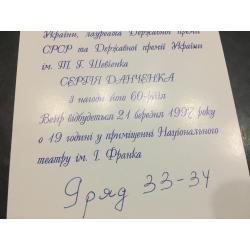 України, лауреата Державної премії
СРСР та Державної премії України
ім. Т. Г. Шевченка
СЕРГІЯ ДАНЧЕНКА
з нагоди його 60-річчя
Вечір відбудеться 21 березня 1997 року
о 19 годині у приміщенні Національного
театру ім. І. Франка
9 ряд 33-34